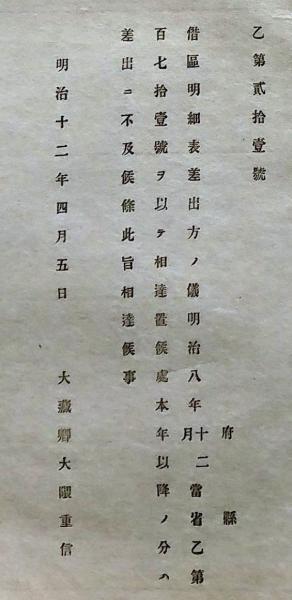 乙第貳拾壹號
府縣
借區明細表差出方ノ儀明治八年十二月當省乙第
百七拾壹號ヲ以テ相達置候處本年以降ノ分ハ
差出ニ不及候條此旨相達候事
明治十二年四月五日
大藏卿大隈重信